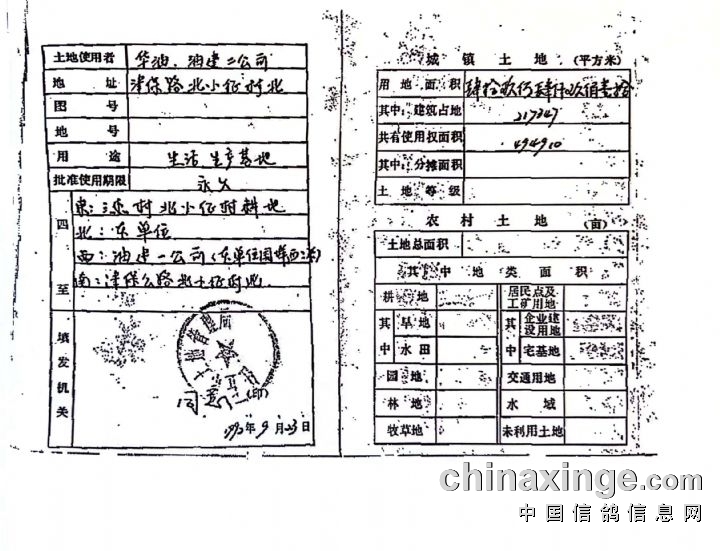 土地使用者 华油、油建二公司
地 址 津保路北小征村北
图 号
地 号
用 途 生活 生产基地
批准使用期限 永久
四至
东:
村北小征村耕地
北:本单位
西:油建一公司(本单位围墙西
南:津保公路北小征村北
填发机关
土地管理局
年9月23日
城 镇 土 地 (平方米)
用地面积
其中:建筑占地 217347
共有使用权面积 494910
其中:分摊面积
土地等级
农 村 土 地 (亩)
土地总面积
其 中 地 类 面 积
耕 地
居民点及工矿用地
其中
旱地
水田
其中
企业建设用地
宅基地
园 地
交通用地
林 地
水 域
牧草地
未利用土地
chinaxinge.com
中国信鸽信息网